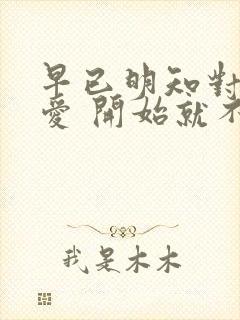 早已明知對
愛 開始就不
我是木木